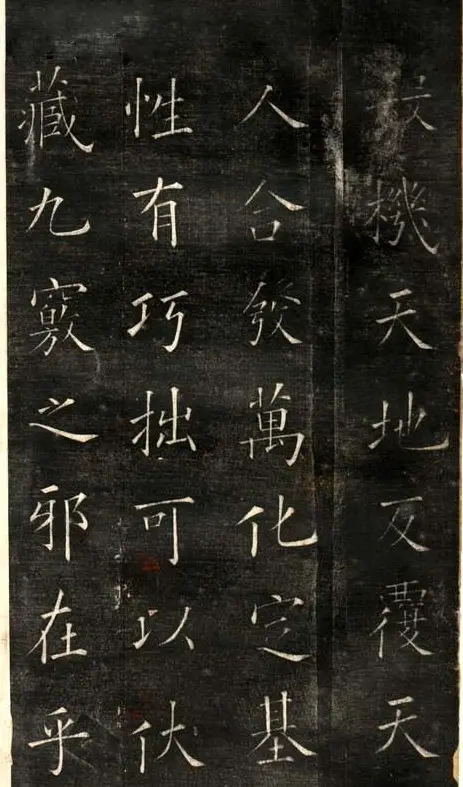 機天地反覆天
人合發萬化定基
性有巧拙可以伏
藏九竅之邪在乎